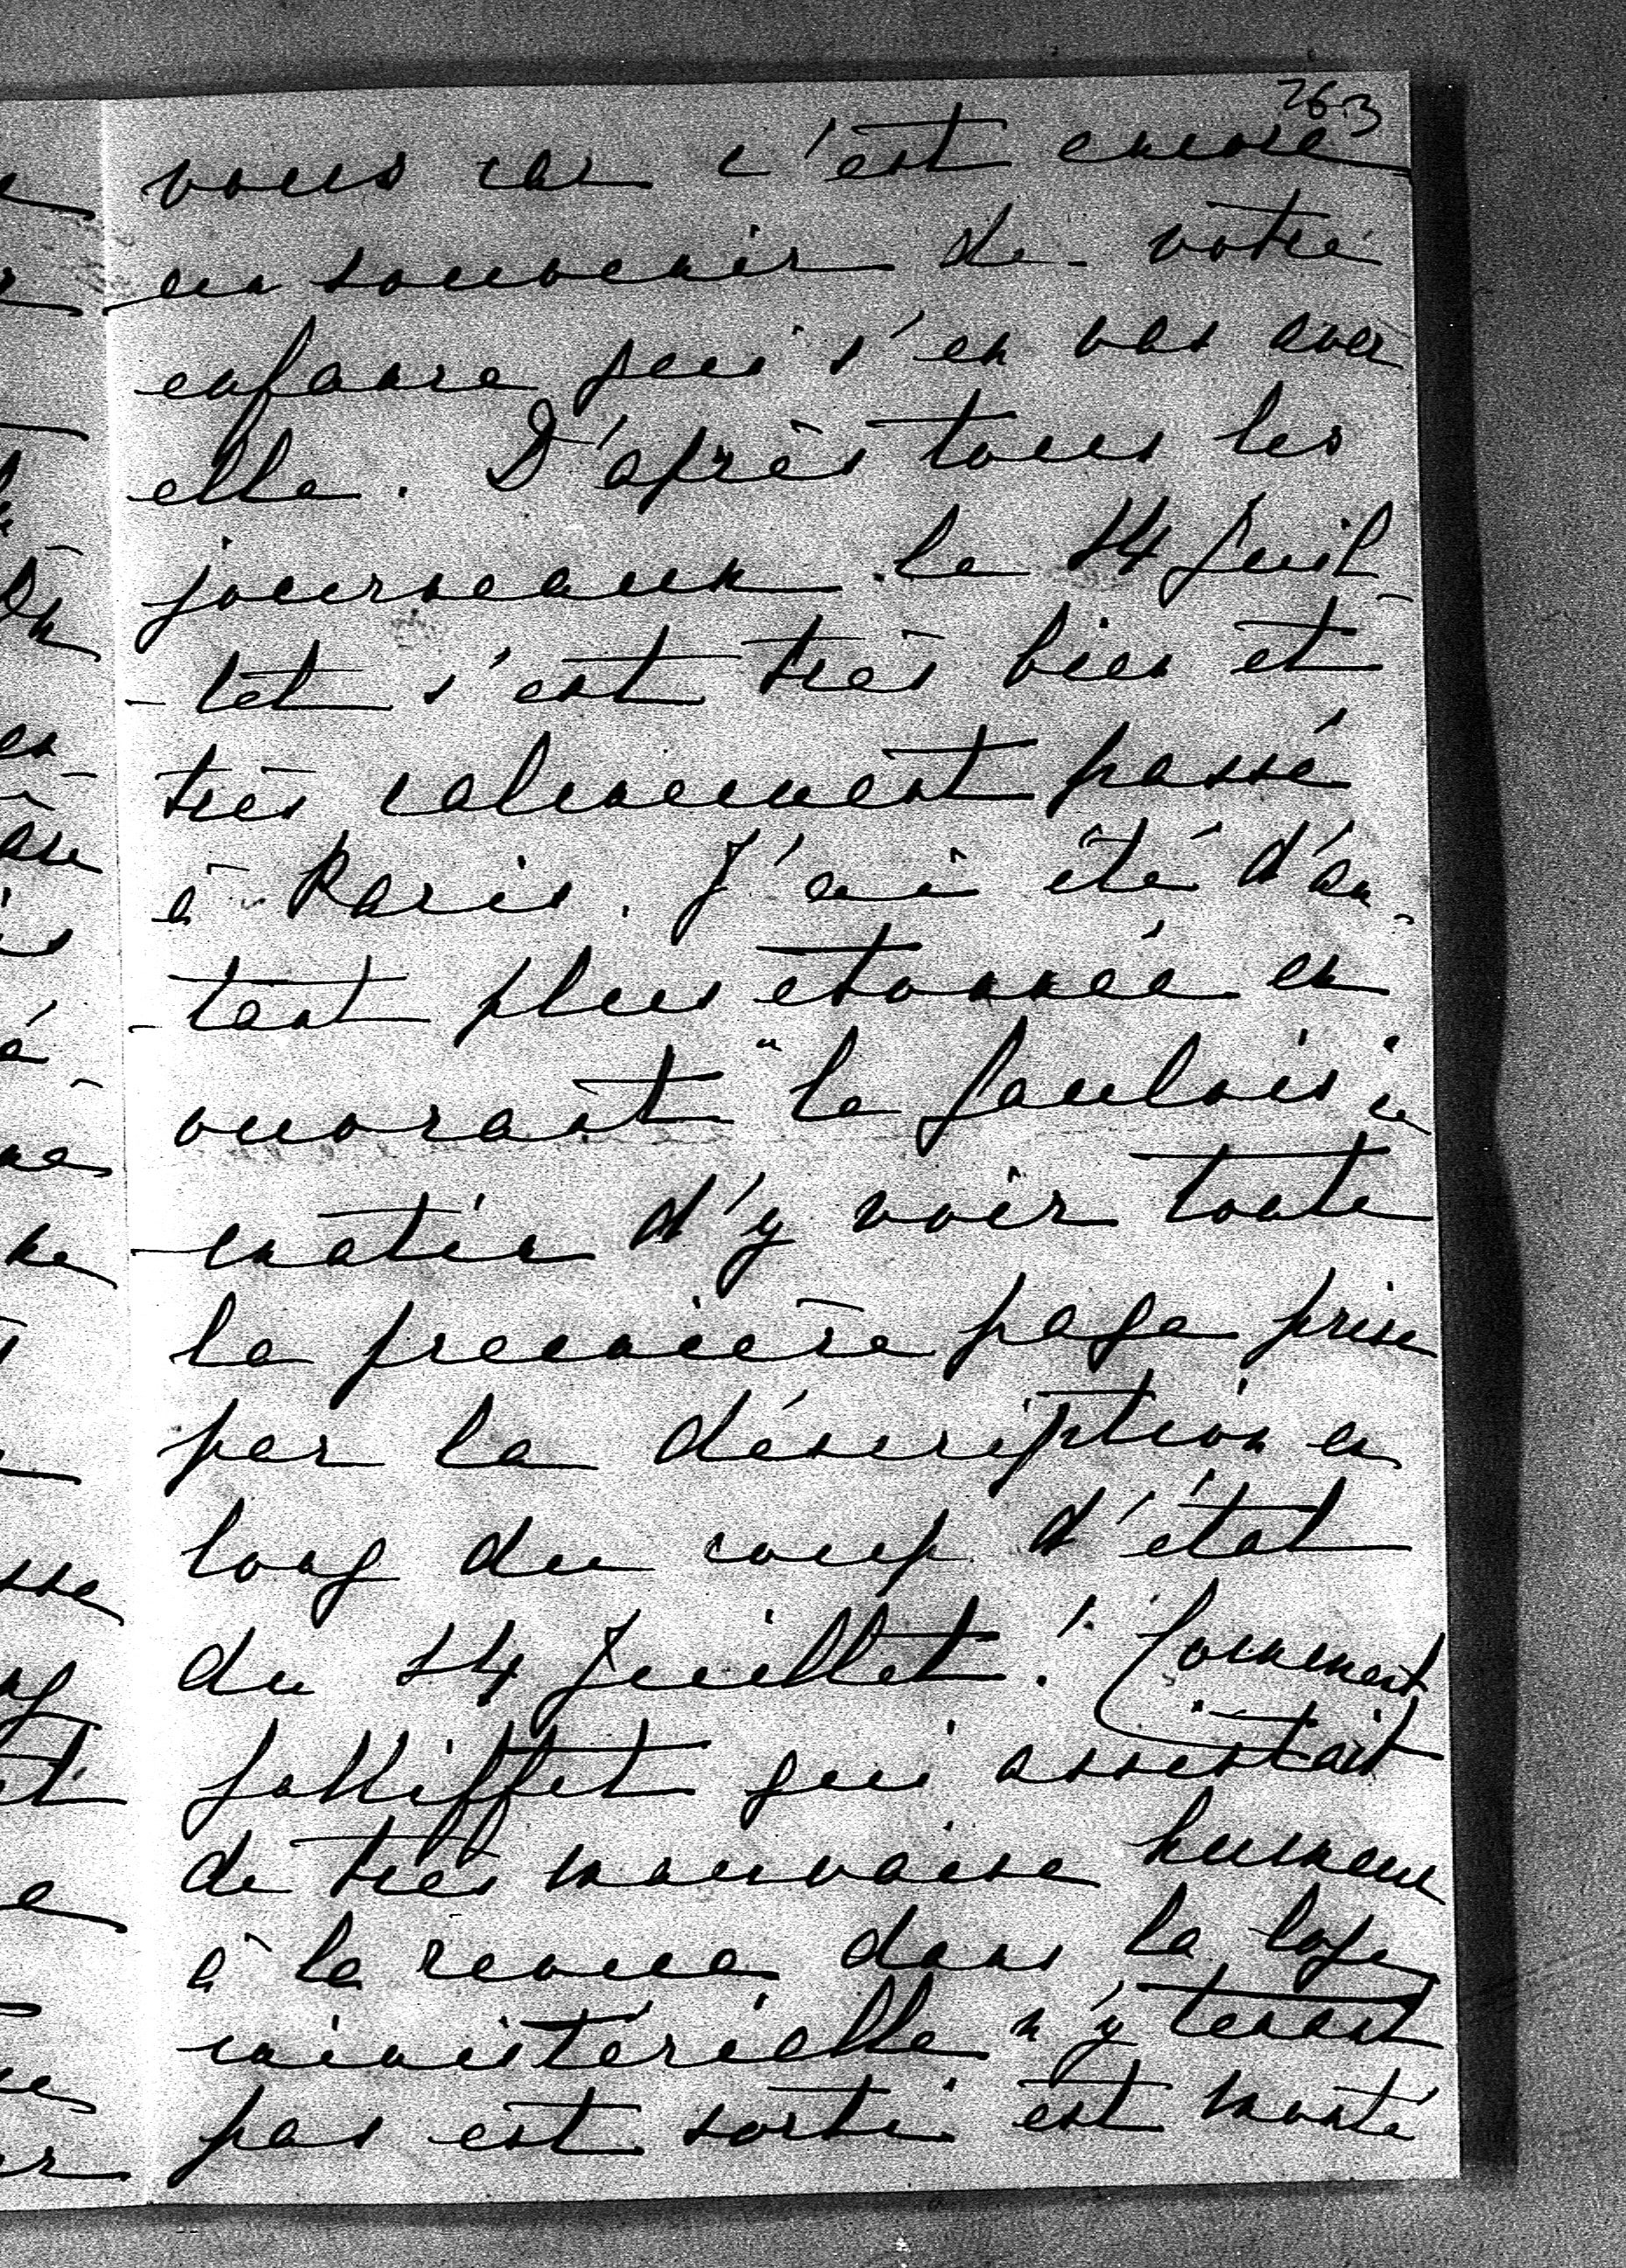 263
vous car c'est encore
un souvenir de votre
enfance qui s'en vas avec
elle. D'après tous les
journeaux le 14 Juil-
-let s'est très bien et
très calmement passé
à Paris. J'ai été d'au-
-tant plus etonnée en
ouvrant "le Gaulois" ce
-matin d'y voir toute
la première page prise
par la déscription en
long du coup d'état
du 14 Juillet! Comment
Galliffet qui assistait
de très mauvaise humeur
à la revue dans la loge
ministérielle n'y tenant
pas est sorti est monté